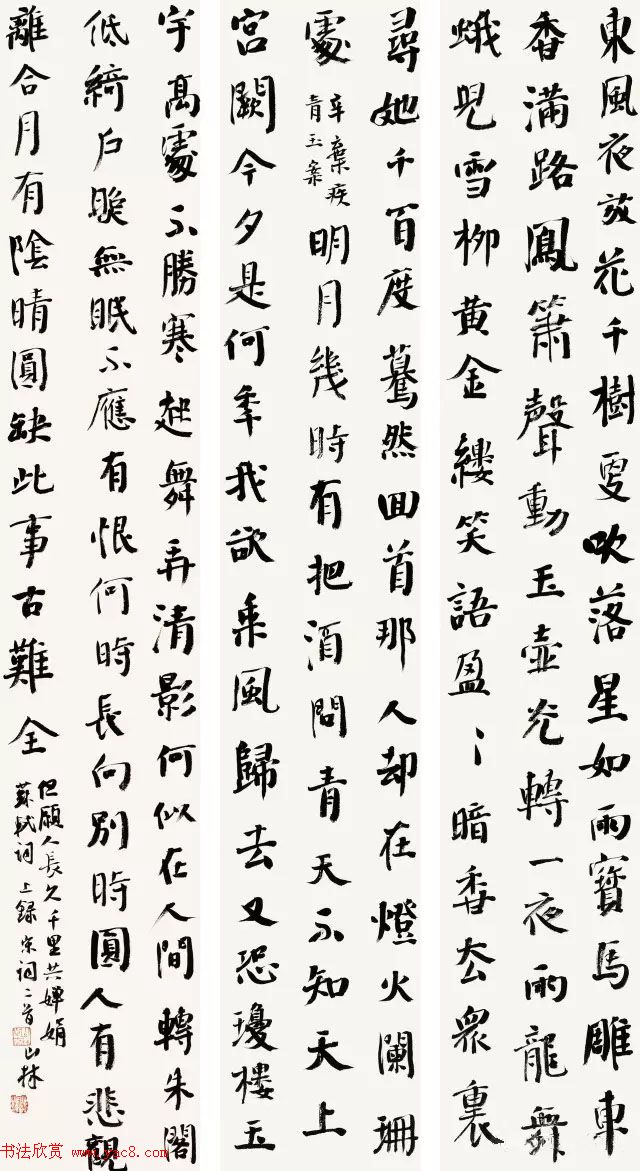 東風夜放花千樹更吹落星如雨寶馬雕車
香滿路鳳簫聲動玉壺光轉一夜雨龍舞
蛾兒雪柳黃金縷笑語盈〻暗香去眾裏
尋她千百度驀然回首那人却在燈火闌珊
處
辛棄疾
青玉案
明月幾時有把酒問青天不知天上
宮闕今夕是何年我欲乘風歸去又恐瓊樓玉
宇高處不勝寒起舞弄清影何似在人間轉朱閣
低綺戶照無眠不應有恨何時長向別時圓人有悲歡
離合月有陰晴圓缺此事古難全
但願人長久千里共嬋娟
蘇軾詞上錄宋詞二首山林
书法欣赏 www.yac8.com